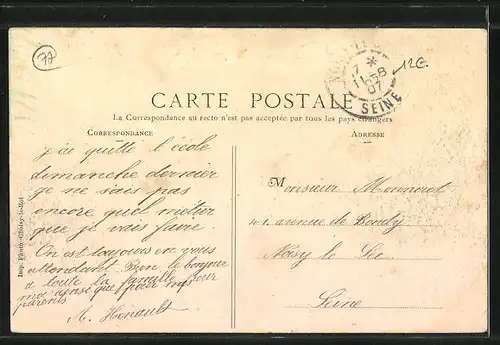 77
12G.
7 *
11 -08
07
SEINE
CARTE POSTALE
La Correspondance au recto n'est pas acceptée par tous les pays étrangers
CORRESPONDANCE
ADRESSE
j'ai quitté l'école
dimanche dernier
je ne sais pas
encore quel métier
que je vais faire.
On est toujours en vous
attendant. Bien le bonjour
à toute la famille pour
moi ainsi que pour mes
parents
A. Henault
Monsieur Monnoret
41. avenue de Bondy
Noisy le Sec
Seine
Imp. Photo Choisy-le-Roi